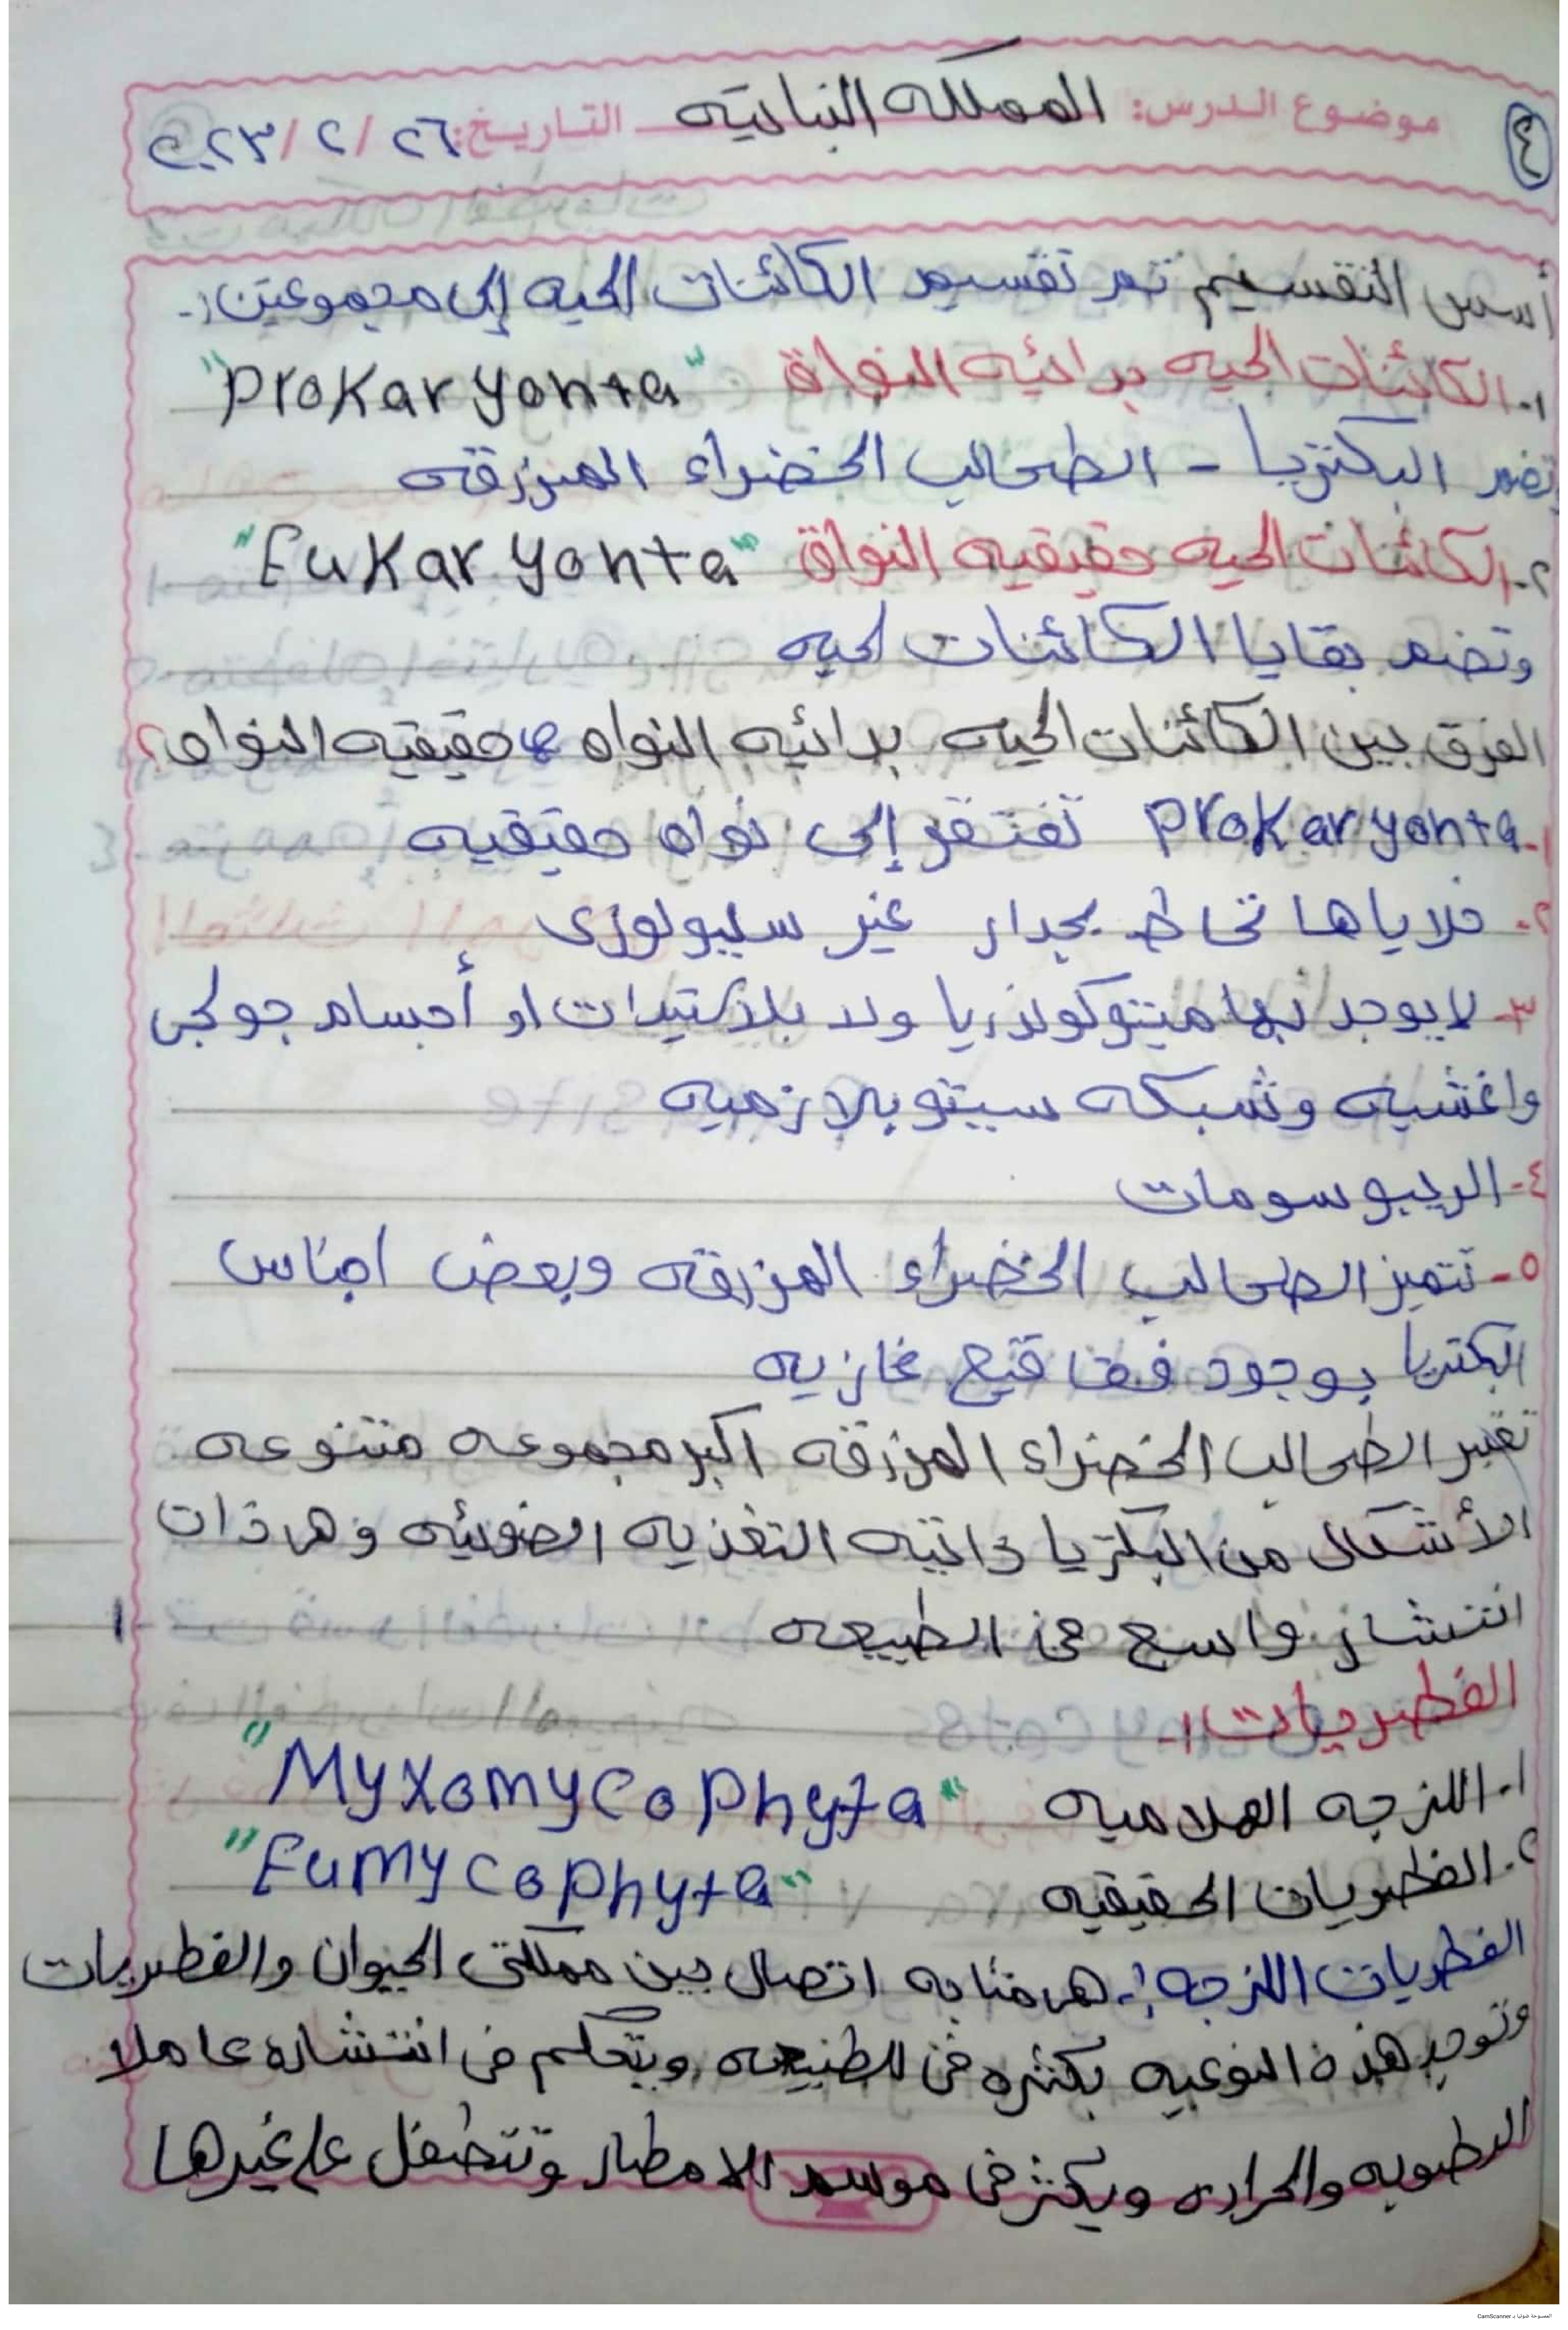 ٤
موضوع الدرس: المملكه النباتيه التاريخ: ٢٦/ ٢/ ٢٠٢٣
أسس التقسيم تم تقسيم الكائنات الحيه إلى مجموعتين:-
١- الكائنات الحيه بدائيه النواة "Prokaryonta"
تضم البكتريا - الطحالب الخضراء المزرقه
٢- الكائنات الحيه حقيقيه النواة "Eukaryonta"
وتضم بقايا الكائنات لحيه
الفرق بين الكائنات الحيه بدائيه النواه و حقيقيه النواه؟
١- Prokaryonta تفتقر إلى نواه حقيقيه
٢- خلاياها تحاط بجدار غير سليولوزى
٣- لا يوجد بها ميتوكوندريا ولا بلاستيدات او أجسام جولجى
واغشيه وشبكه سيتوبلازميه
٤- الريبوسومات
٥- تتميز الطحالب الخضراء المزرقه وبعض اجناس
البكتريا بوجود فقاقيع غازيه
تعتبر الطحالب الخضراء المزرقه اكبر مجموعه متنوعه
الأشكال من البكتريا ذاتيه التغذيه الضوئيه وهى ذات
انتشار واسع فى الطبيعه
الفطريات:-
١- اللزجه الهلاميه "Myxomycophyta"
٢- الفطريات الحقيقيه "Eumycophyta"
الفطريات اللزجه:- هى مثابه اتصال بين مملكتى الحيوان والفطريات
وتوجد هذه النوعيه بكثره فى الطبيعه ويتحكم فى انتشاره عاملا
الرطوبه والحراره ويكثر فى موسم الامطار وتتطفل على غيرها
الممسوحة ضوئيا بـ CamScanner